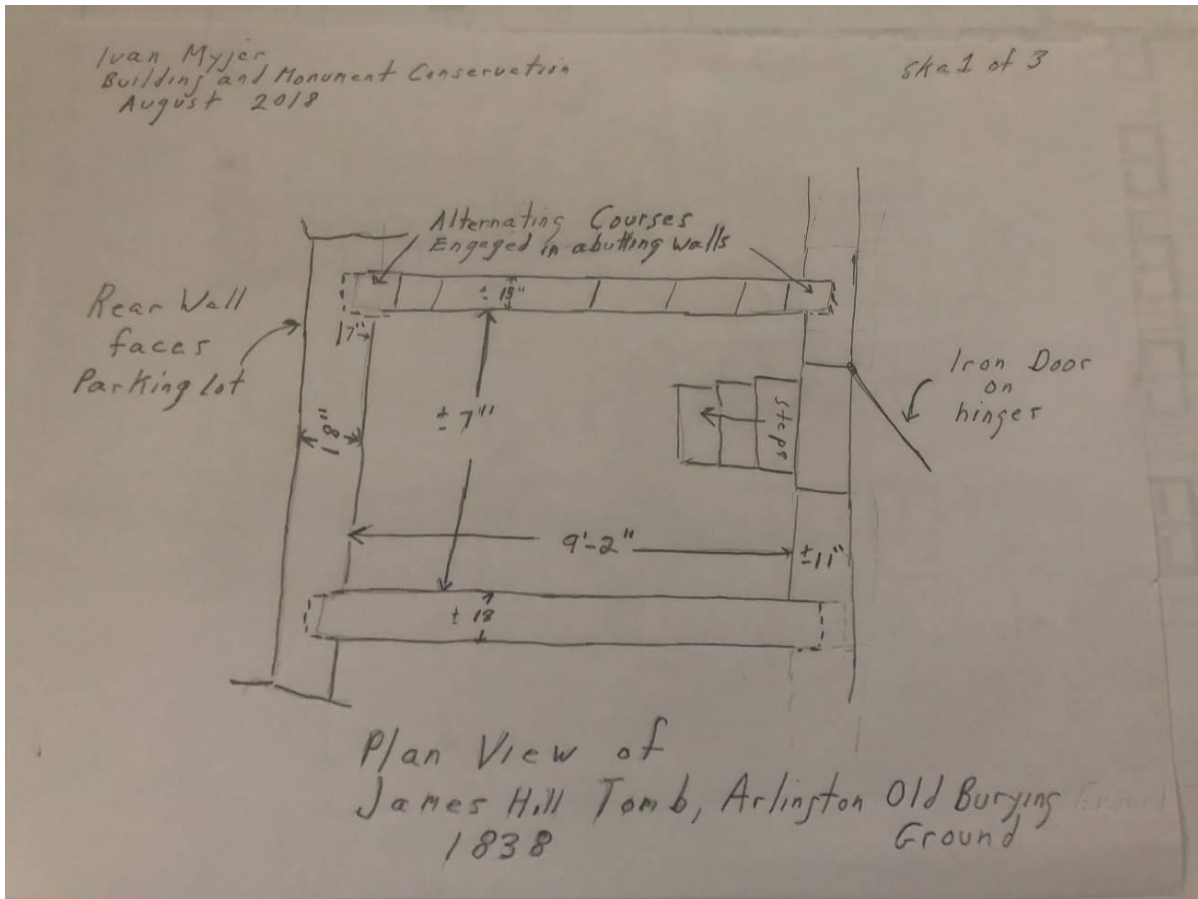 Ivan Myjer
Building and Monument Conservation
August 2018
ska 1 of 3
Alternating Courses
Engaged in abutting walls
Rear Wall
faces
Parking lot
± 18"
17"
Iron Door
on
hinges
steps
± 7'"
18"
9'-2"
±11"
± 18
Plan View of
James Hill Tomb, Arlington Old Burying Ground
Ground
1838